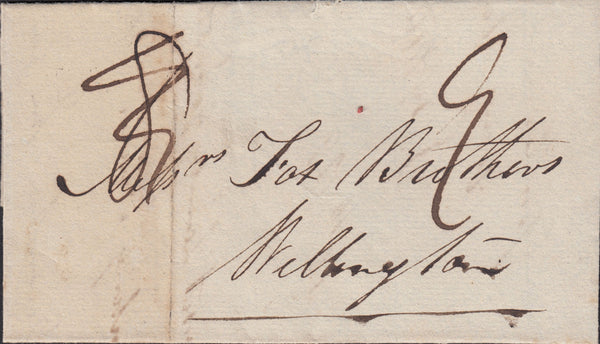 Messrs Fox Brothers
Wellington